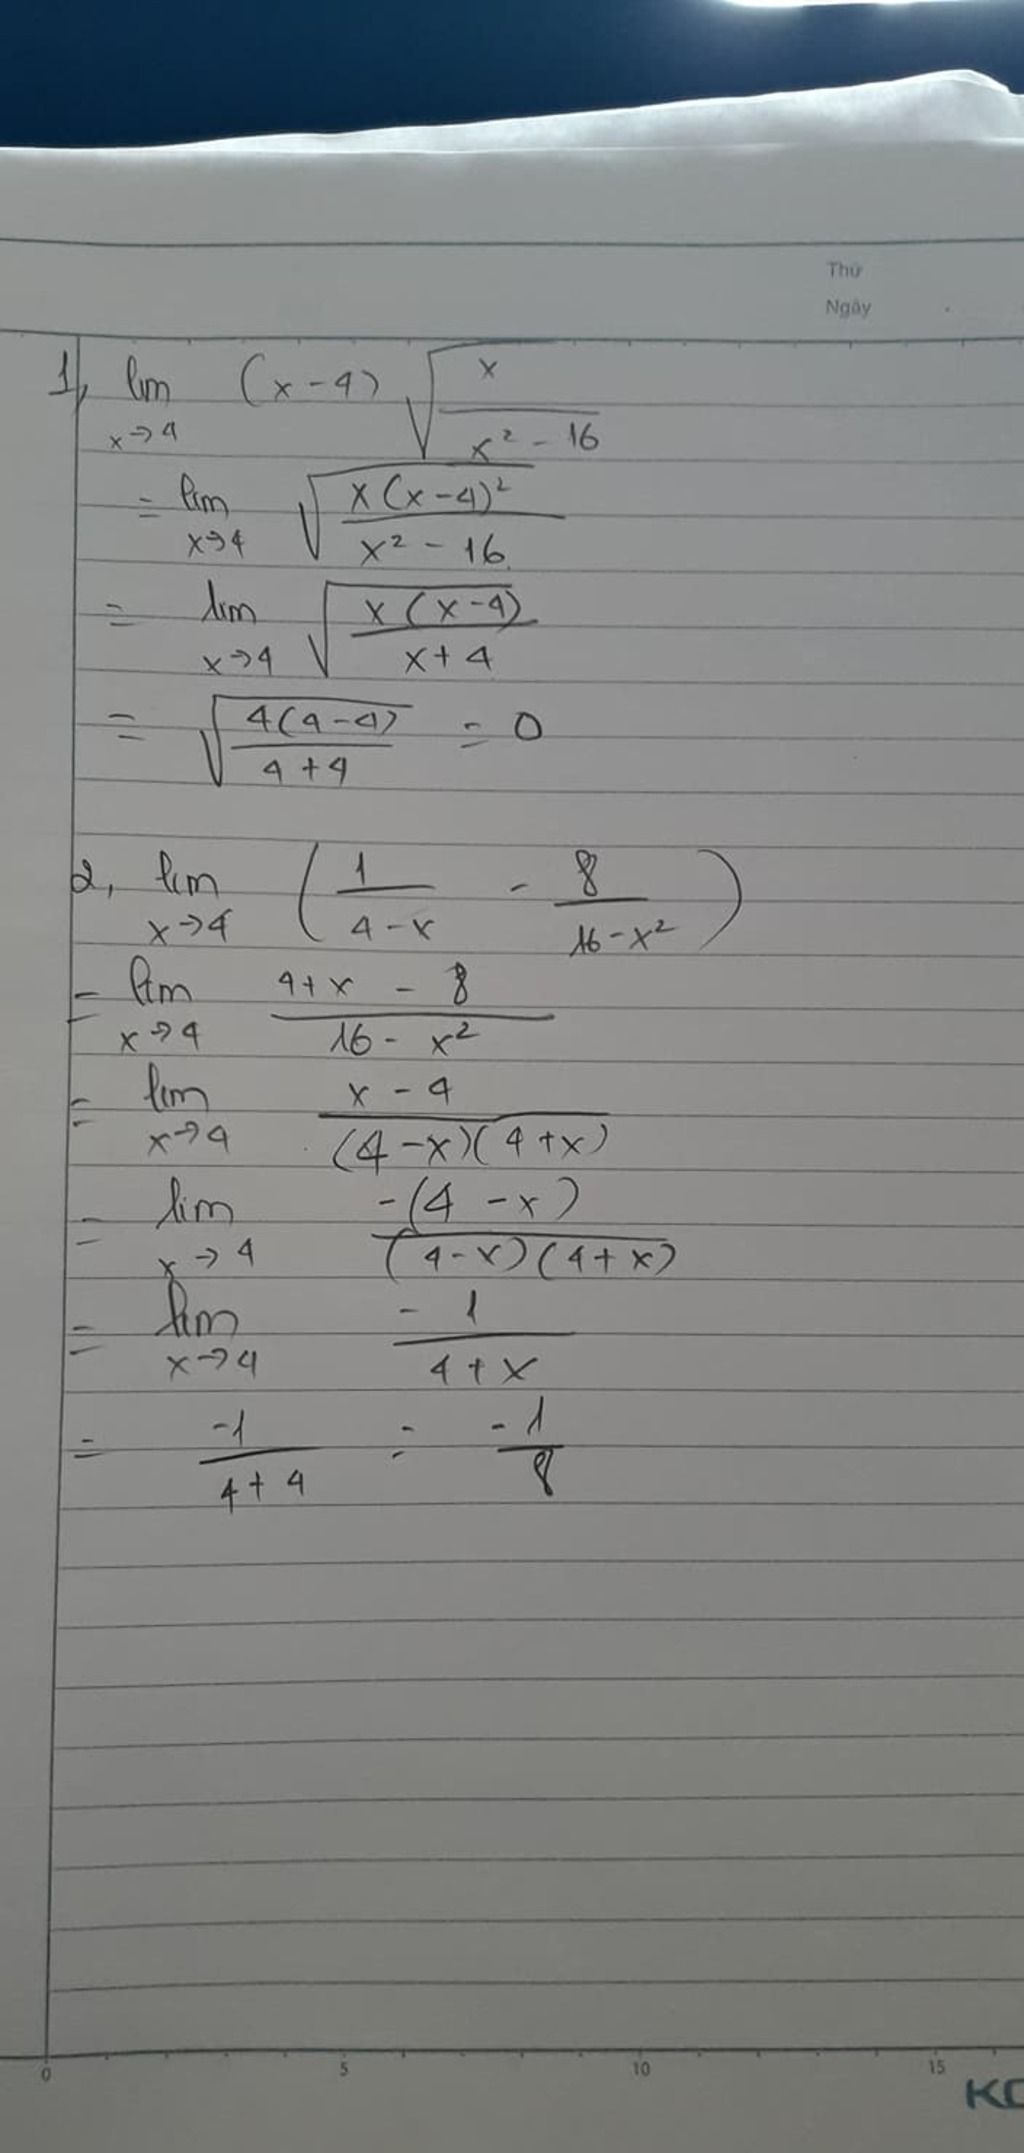 Thứ
Ngày
1, lim x→4 (x-4) √(x/(x² - 16))
= lim x→4 √(x(x-4)²/(x² - 16))
= lim x→4 √(x(x-4)/(x+4))
= √(4(4-4)/(4+4)) = 0
2, lim x→4 (1/(4-x) - 8/(16-x²))
= lim x→4 (4+x - 8)/(16 - x²)
= lim x→4 (x - 4)/((4-x)(4+x))
= lim x→4 -(4-x)/((4-x)(4+x))
= lim x→4 -1/(4+x)
= -1/(4+4) = -1/8
0 5 10 15